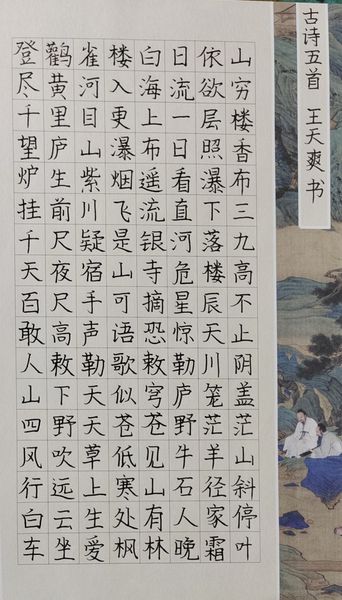 古诗五首 王天爽书
登鹳雀楼白日依山
尽黄河入海流欲穷
千里目更上一层楼
望庐山瀑布日照香
炉生紫烟遥看瀑布
挂前川飞流直下三
千尺疑是银河落九
天夜宿山寺危楼高
百尺手可摘星辰不
敢高声语恐惊天止
人敕勒歌敕勒川阴
山下天似穹庐笼盖
四野天苍苍野茫茫
风吹草低见牛羊山
行远上寒山石径斜
白云生处有人家停
车坐爱枫林晚霜叶